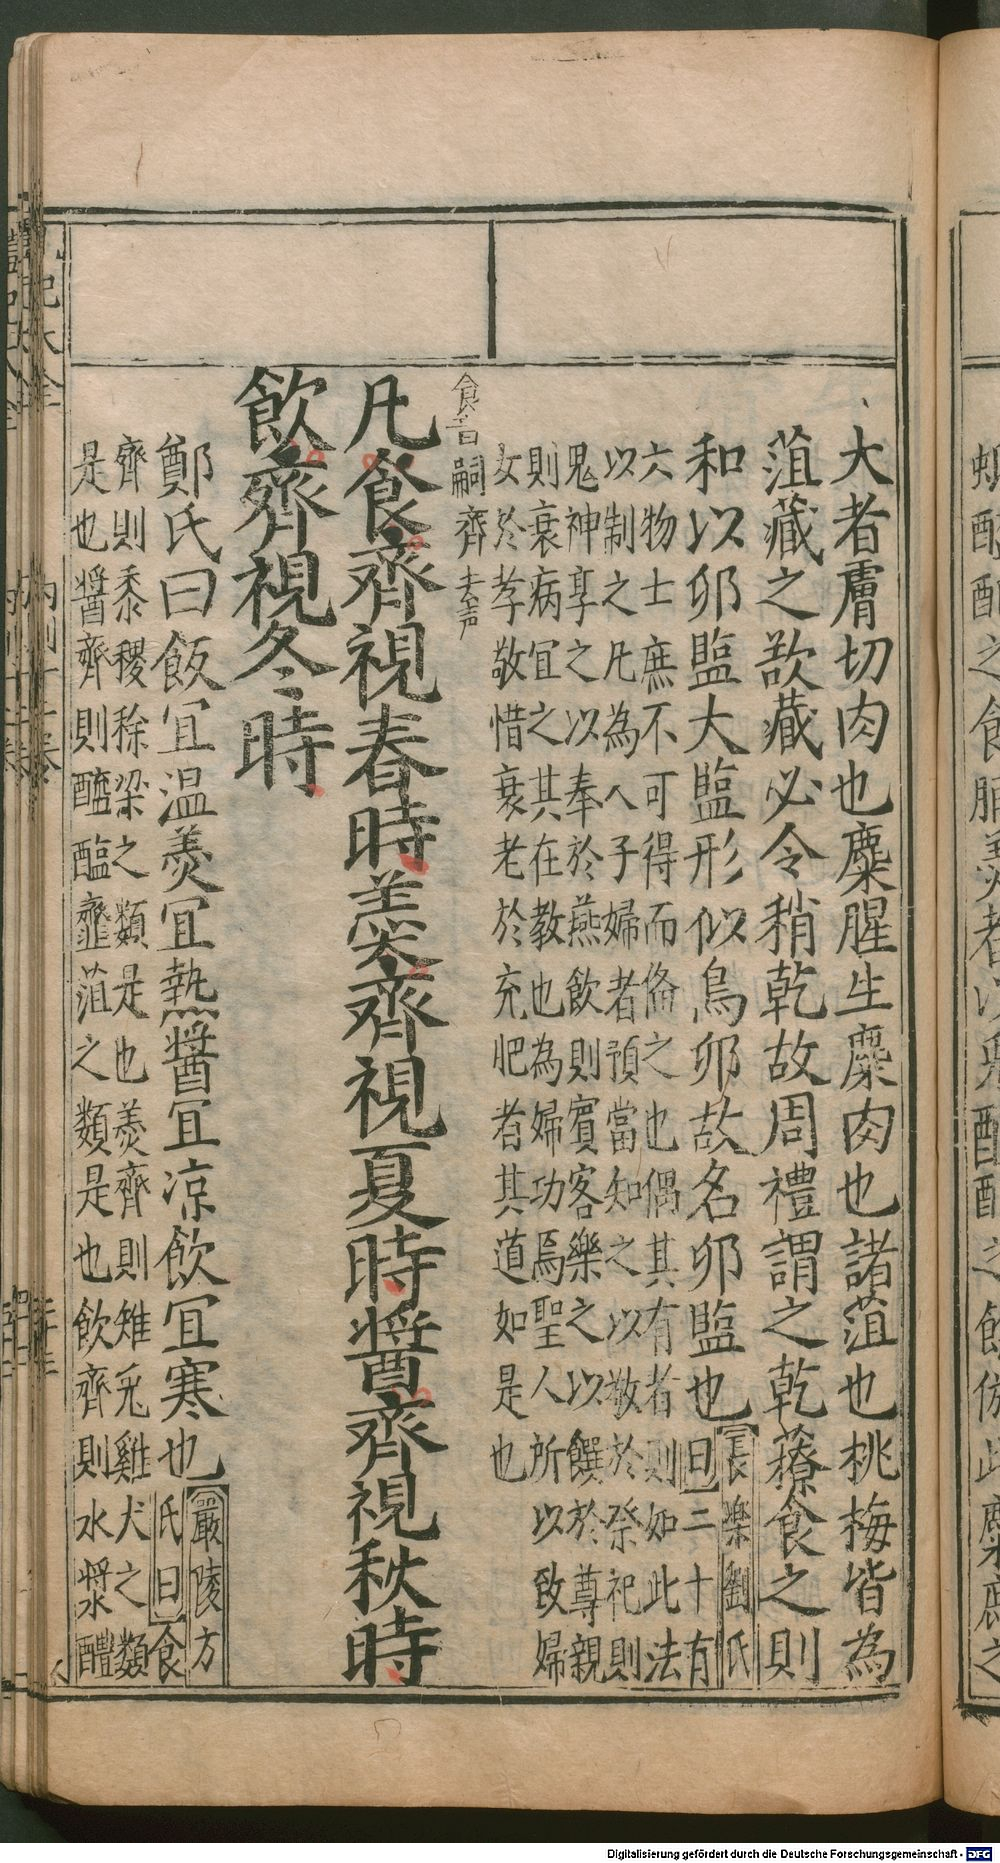 大者膚切肉也麋腥生麋肉也諸菹也桃梅皆為
菹藏之欲藏必令稍乾故周禮謂之乾䕩食之則
和以卵鹽大鹽形似鳥卵故名卵鹽也
長樂劉氏
曰二十有
六物士庶不可得而偹之也偶其有者則如此法
以制之凡為人子婦者預當知之以敬於祭祀則
鬼神享之以奉於燕飲則賓客樂之以饌於尊親
則衰病宜之其在教也為婦功焉聖人所以致婦
女於孝敬惜衰老於充肥者其道如是也
食音嗣齊去声
凡食齊視春時羮齊視夏時醬齊視秋時
飲齊視冬時
鄭氏曰飯宜温羮宜熱醬宜凉飲宜寒也
嚴陵方
氏曰食
齊則黍稷稌梁之類是也羮齊則雉兎雞犬之類
是也醬齊則醯醢虀菹之類是也飲齊則水漿醴
禮記大全
内則十二卷
Digitalisierung gefördert durch die Deutsche Forschungsgemeinschaft - DFG